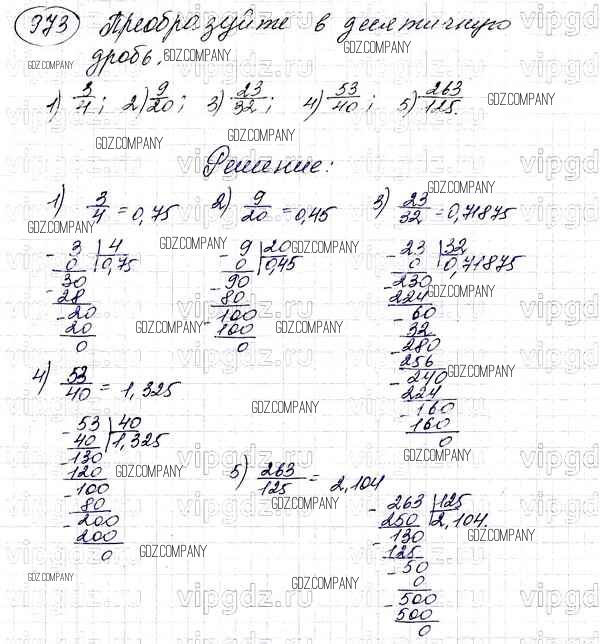 973 Преобразуйте в десятичную
дробь.
1) 3/4; 2) 9/20; 3) 23/32; 4) 53/40; 5) 263/125.
Решение:
1) 3/4 = 0,75
2) 9/20 = 0,45
3) 23/32 = 0,71875
- 3 | 4
0 | 0,75
- 30
28
- 20
20
0
- 9 | 20
0 | 0,45
- 90
80
- 100
100
0
- 23 | 32
0 | 0,71875
- 230
224
- 60
32
- 280
256
- 240
224
- 160
160
0
4) 53/40 = 1,325
- 53 | 40
40 | 1,325
- 130
120
- 100
80
- 200
200
0
5) 263/125 = 2,104
- 263 | 125
250 | 2,104.
- 130
125
- 50
0
- 500
500
0
GDZ.COMPANY
vipgdz.ru